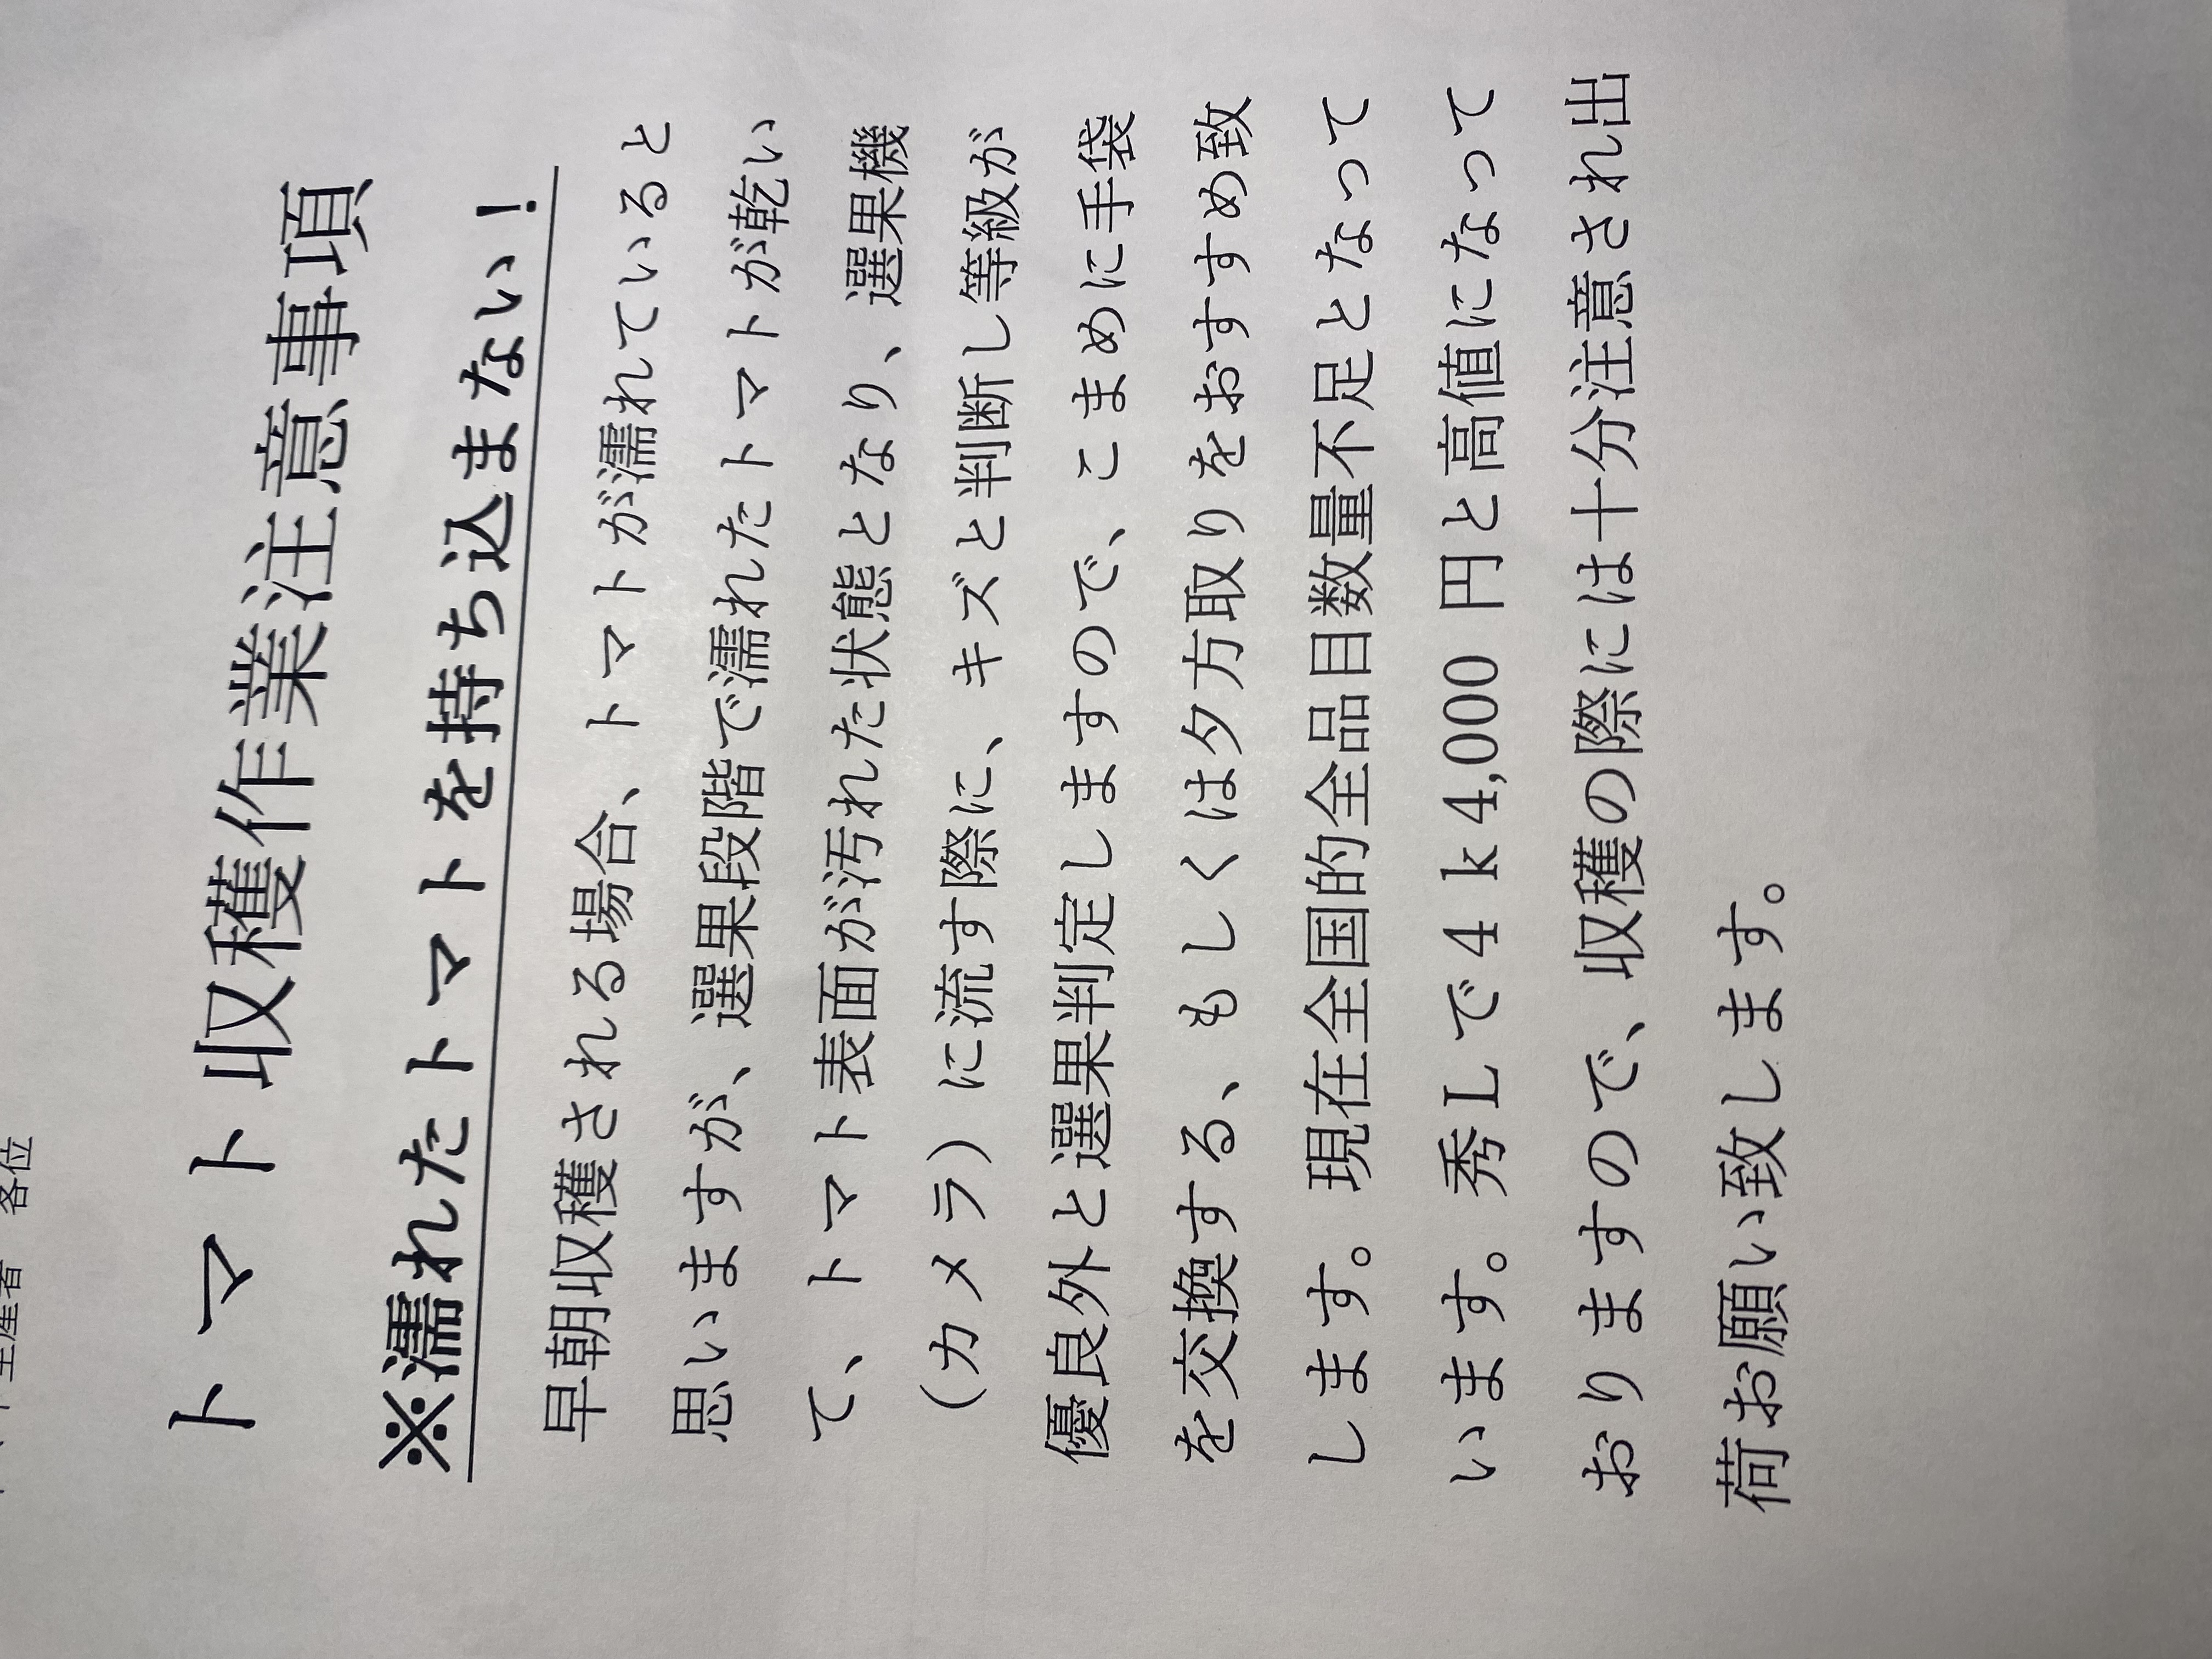 生産者　各位
トマト収穫作業注意事項
※濡れたトマトを持ち込まない！
早朝収穫される場合、トマトが濡れていると
思いますが、選果段階で濡れたトマトが乾い
て、トマト表面が汚れた状態となり、選果機
（カメラ）に流す際に、キズと判断し等級が
優良外と選果判定しますので、こまめに手袋
を交換する、もしくは夕方取りをおすすめ致
します。現在全国的全品目数量不足となって
います。秀Ｌで４ｋ4,000 円と高値になって
おりますので、収穫の際には十分注意され出
荷お願い致します。